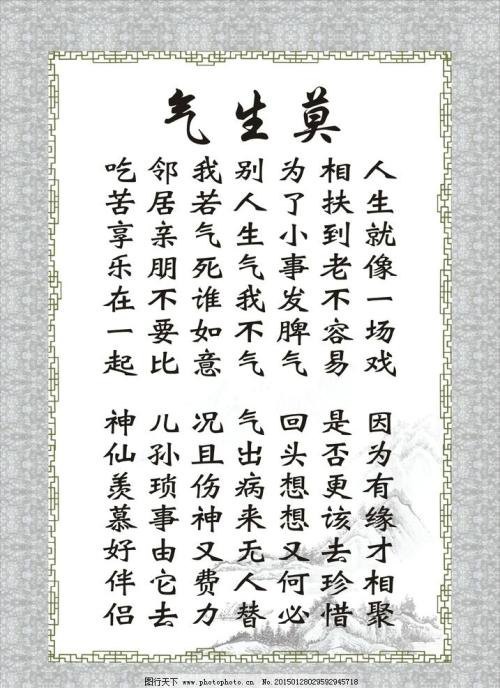 莫生气
人生就像一场戏
因为有缘才相聚
相扶到老不容易
是否更该去珍惜
为了小事发脾气
回头想想又何必
别人生气我不气
气出病来无人替
我若气死谁如意
况且伤神又费力
邻居亲朋不要比
儿孙琐事由它去
吃苦享乐在一起
神仙羡慕好伴侣
图行天下 www.photophoto.cn No.20150128029592945718